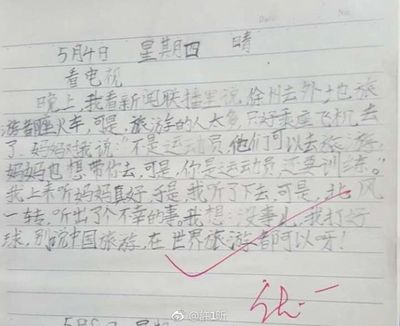 5月4日 星期四 晴
看电视
晚上,我看新闻联播里说,徐州去外地旅
游都座火车,可是,旅游的人太多,只好乘座飞机去
了,妈妈对我说:"不是运动员,他们可以去旅游,
妈妈也想带你去,可是,你是运动员,还要训练。"
我上来听妈妈真好,于是,我听了下去,可是,北风
一转,听出了个不幸的事。我想:没事儿,我打好
球,别说中国旅游,在世界旅游都可以呀!
优一
@許1昕